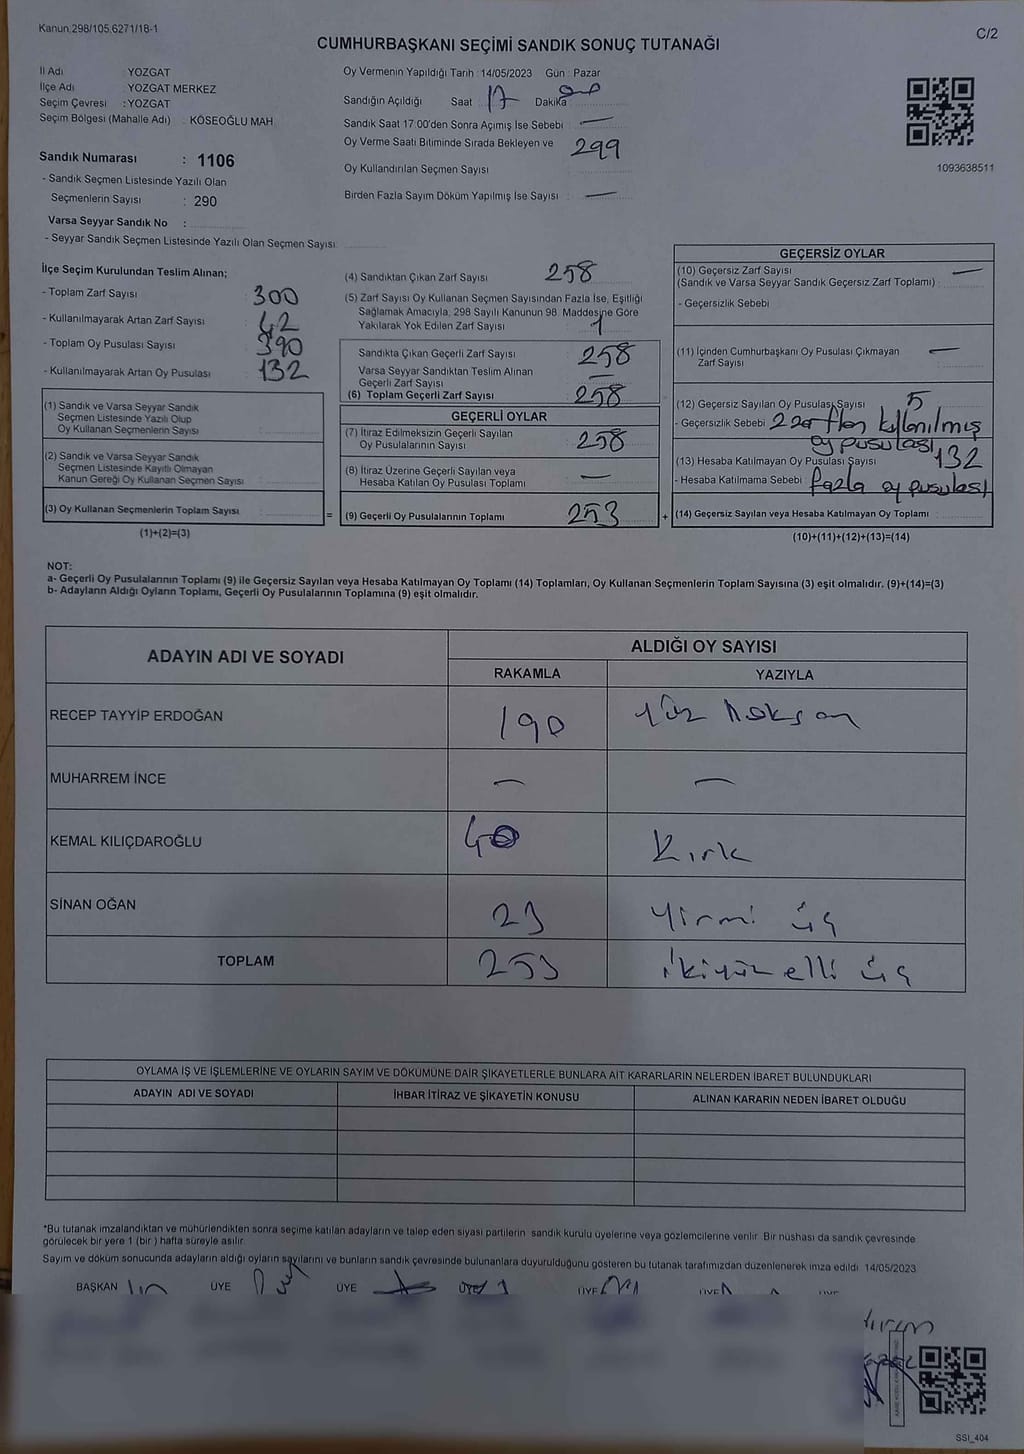 Kanun.298/105.6271/18-1
C/2
CUMHURBAŞKANI SEÇİMİ SANDIK SONUÇ TUTANAĞI
İl Adı YOZGAT
İlçe Adı YOZGAT MERKEZ
Seçim Çevresi : YOZGAT
Seçim Bölgesi (Mahalle Adı) : KÖSEOĞLU MAH.
Sandık Numarası : 1106
- Sandık Seçmen Listesinde Yazılı Olan
Seçmenlerin Sayısı : 290
Varsa Seyyar Sandık No :
- Seyyar Sandık Seçmen Listesinde Yazılı Olan Seçmen Sayısı:
Oy Vermenin Yapıldığı Tarih : 14/05/2023 Gün : Pazar
Sandığın Açıldığı Saat 17 Dakika
Sandık Saat 17:00'den Sonra Açılmış İse Sebebi : —
Oy Verme Saati Bitiminde Sırada Bekleyen ve 299
Oy Kullandırılan Seçmen Sayısı
Birden Fazla Sayım Döküm Yapılmış İse Sayısı : —
1093638511
İlçe Seçim Kurulundan Teslim Alınan;
- Toplam Zarf Sayısı 300
- Kullanılmayarak Artan Zarf Sayısı 42
- Toplam Oy Pusulası Sayısı 390
- Kullanılmayarak Artan Oy Pusulası 132
(1) Sandık ve Varsa Seyyar Sandık
Seçmen Listesinde Yazılı Olup
Oy Kullanan Seçmenlerin Sayısı
(2) Sandık ve Varsa Seyyar Sandık
Seçmen Listesinde Kayıtlı Olmayan
Kanun Gereği Oy Kullanan Seçmen Sayısı
(3) Oy Kullanan Seçmenlerin Toplam Sayısı =
(1)+(2)=(3)
(4) Sandıktan Çıkan Zarf Sayısı 258
(5) Zarf Sayısı Oy Kullanan Seçmen Sayısından Fazla İse, Eşitliği
Sağlamak Amacıyla, 298 Sayılı Kanunun 98. Maddesine Göre
Yakılarak Yok Edilen Zarf Sayısı 1
Sandıkta Çıkan Geçerli Zarf Sayısı 258
Varsa Seyyar Sandıktan Teslim Alınan
Geçerli Zarf Sayısı —
(6) Toplam Geçerli Zarf Sayısı 258
GEÇERLİ OYLAR
(7) İtiraz Edilmeksizin Geçerli Sayılan
Oy Pusulalarının Sayısı 258
(8) İtiraz Üzerine Geçerli Sayılan veya
Hesaba Katılan Oy Pusulası Toplamı —
(9) Geçerli Oy Pusulalarının Toplamı 253 +
GEÇERSİZ OYLAR
(10) Geçersiz Zarf Sayısı —
(Sandık ve Varsa Seyyar Sandık Geçersiz Zarf Toplamı) :
- Geçersizlik Sebebi
(11) İçinden Cumhurbaşkanı Oy Pusulası Çıkmayan —
Zarf Sayısı
(12) Geçersiz Sayılan Oy Pusulası Sayısı 5
- Geçersizlik Sebebi kullanılmış
oy pusulası
(13) Hesaba Katılmayan Oy Pusulası Sayısı 132
- Hesaba Katılmama Sebebi fazla oy pusulası
(14) Geçersiz Sayılan veya Hesaba Katılmayan Oy Toplamı :
(10)+(11)+(12)+(13)=(14)
NOT:
a- Geçerli Oy Pusulalarının Toplamı (9) ile Geçersiz Sayılan veya Hesaba Katılmayan Oy Toplamı (14) Toplamları, Oy Kullanan Seçmenlerin Toplam Sayısına (3) eşit olmalıdır. (9)+(14)=(3)
b- Adayların Aldığı Oyların Toplamı, Geçerli Oy Pusulalarının Toplamına (9) eşit olmalıdır.
ADAYIN ADI VE SOYADI ALDIĞI OY SAYISI
RAKAMLA YAZIYLA
RECEP TAYYİP ERDOĞAN 190 yüz doksan
MUHARREM İNCE — —
KEMAL KILIÇDAROĞLU 40 Kırk
SİNAN OĞAN 23 Yirmi üç
TOPLAM 253 ikiyüz elli üç
OYLAMA İŞ VE İŞLEMLERİNE VE OYLARIN SAYIM VE DÖKÜMÜNE DAİR ŞİKAYETLERLE BUNLARA AİT KARARLARIN NELERDEN İBARET BULUNDUKLARI
ADAYIN ADI VE SOYADI İHBAR İTİRAZ VE ŞİKAYETİN KONUSU ALINAN KARARIN NEDEN İBARET OLDUĞU
*Bu tutanak imzalandıktan ve mühürlendikten sonra seçime katılan adayların ve talep eden siyasi partilerin sandık kurulu üyelerine veya gözlemcilerine verilir. Bir nüshası da sandık çevresinde
görülecek bir yere 1 (bir) hafta süreyle asılır.
Sayım ve döküm sonucunda adayların aldığı oyların sayılarını ve bunların sandık çevresinde bulunanlara duyurulduğunu gösteren bu tutanak tarafımızdan düzenlenerek imza edildi. 14/05/2023
BAŞKAN ÜYE ÜYE ÜYE ÜYE ÜYE ÜYE
SSI_404